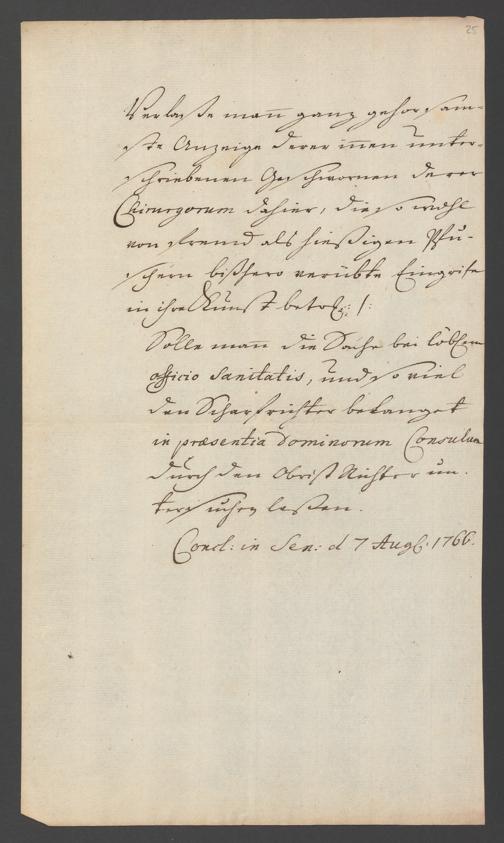 25
Verlaße man ganz gehorsam-
ste Anzeige derer innen unter-
schriebenen Geschwornen derer
Chirurgorum dahier, die so wohl
von fremd als hießigen Pfu-
schern bißhero verübte Eingrife
in ihre Kunst betref: /:
Solle man die Sache bei löbl.
officio Sanitatis, und so viel
den Scharfrichter belanget
in præsentia Dominorum Consulum
durch den Obrist Richter un-
tersuchen laßen.
Concl: in Sen: d 7 Aug: 1766.